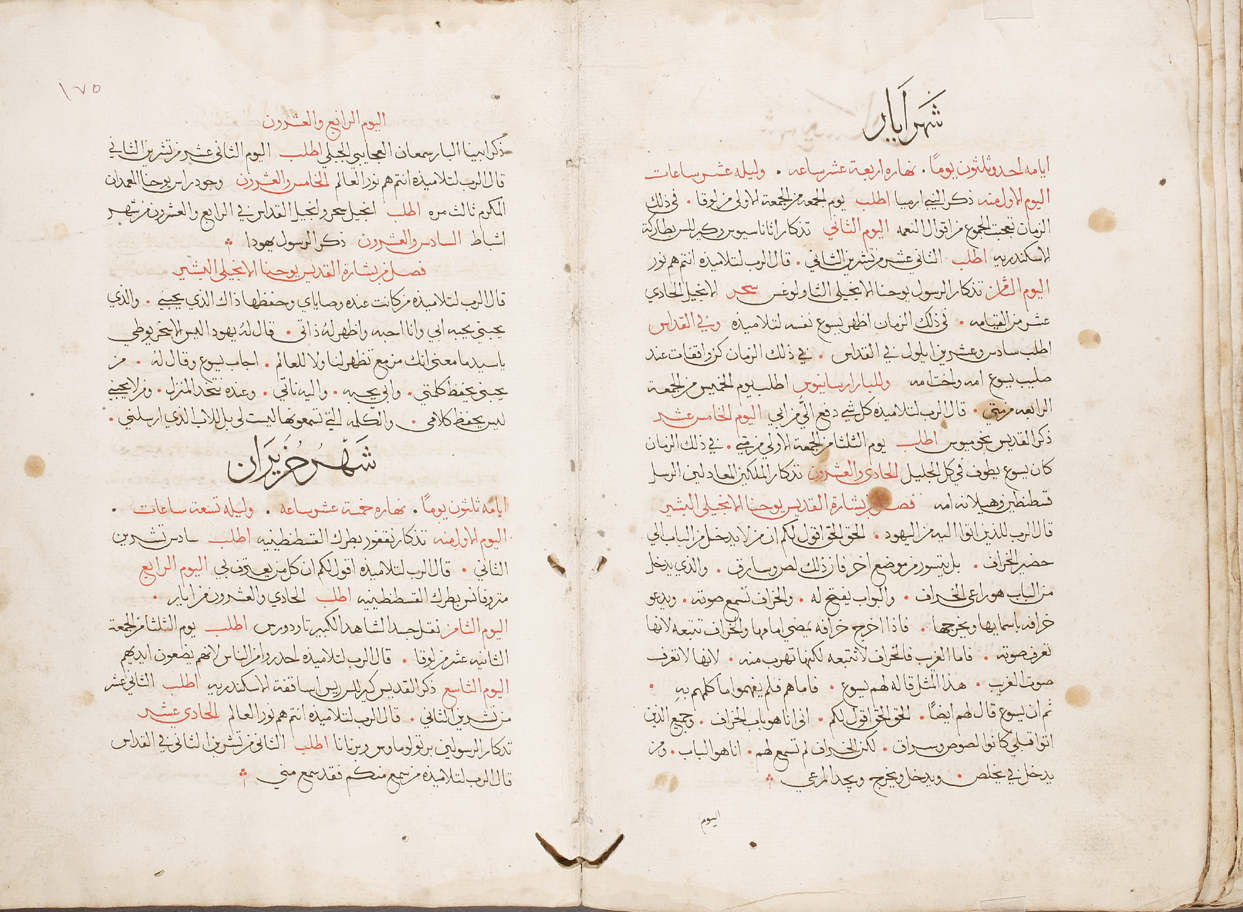 شهر ايار
ايامه احد وثلثون يومًا . نهاره اربعة عشر ساعه . وليله عشر ساعات
اليوم الاول منه ذكر النبي ارميا اطلب يوم الجمعه من الجمعة الاولى من لوقا . في ذلك
الزمان تعجب الجموع من اقوال النعمه اليوم الثاني تذكار اثاناسيوس ريس بطاركة
الاسكندريه اطلب الثاني عشر من تشرين الثاني . قال الرب لتلاميذه انتم هم نور
اليوم الثامن تذكار الرسول يوحنا الانجيلي الثاولوغس سحر الانجيل الحادي
عشر من القيامه . في ذلك الزمان اظهر يسوع نفسه لتلاميذه وفي القداس
اطلب سادس وعشرين ايلول في القداس . في ذلك الزمان كن واقفات عند
صليب يسوع امه واخت امه وللبار ارسانيوس اطلب يوم الخميس من الجمعة
الرابعه من متي . قال الرب لتلاميذه كل شي دفع اليَّ من ابي اليوم الخامس عشر
ذكر القديس بخوميوس اطلب يوم الثلثا من الجمعة الاولى من متي . في ذلك الزمان
كان يسوع يطوف في كل الجليل الحادي والعشرون تذكار الملكين المعادلين الرسل
قسطنطين وهيلانه امه فصل من بشارة القديس يوحنا الانجيلي البشير
قال الرب للذين اتوا اليه من اليهود . الحق الحق اقول لكم ان من لا يدخل من الباب الي
حضير الخراف . بل يتسور من موضع اخر فان ذلك لص وسارق . والذي يدخل
من الباب هو راعي الخراف . والبواب يفتح له . والخراف تسمع صوته . ويدعو
خرافه باسمايها ويخرجها . فاذا اخرج خرافه يمضي امامها والخراف تتبعه لانها
تعرف صوته . فاما الغريب فالخراف لا تتبعه لكنها تهرب منه . لانها لا تعرف
صوت الغريب . هذا المثل قاله لهم يسوع . فاما هم فلم يفهموا ما كلمهم به .
ثم ان يسوع قال لهم ايضًا . الحق الحق اقول لكم . اني انا هو باب الخراف . وجميع الذين
اتوا قبلي كانوا لصوص وسراق . لكن الخراف لم تسمع لهم . انا هو الباب . ومن
يدخل بي يخلص . ويدخل ويخرج ويجد المرعي
اليوم
١٧٥
اليوم الرابع والعشرون
ذكر ابينا البار سمعان العجايبي الجبلي اطلب اليوم الثاني عشر من تشرين الثاني
قال الرب لتلاميذه انتم هم نور العالم الخامس والعشرون وجود راس يوحنا المعمدان
المكرم ثالث مره اطلب انجيل سحر وانجيل القداس في الرابع والعشرون من شهر
اشباط السادس والعشرون ذكر الرسول يهودا
فصل من بشارة القديس يوحنا الانجيلي البشير
قال الرب لتلاميذه من كانت عنده وصاياي وحفظها ذاك الذي يحبني . والذي
يحبني يحبه ابي وانا احبه واظهر له ذاتي . قال له يهودا ليس الاسخريوطي
يا سيد ما معني انك مزمع تظهر لنا ولا للعالم . اجاب يسوع وقال له . من
يحبني يحفظ كلمتي . وابي يحبه . واليه ناتي . وعنده نتخذ المنزل . ومن لا يحبني
ليس يحفظ كلامي . والكلمه التي تسمعونها ليست لي بل للاب الذي ارسلني .
شهر حزيران
ايامه ثلثون يومًا . نهاره خمسة عشر ساعه . وليله تسعة ساعات .
اليوم الاول منه تذكار نيقفور بطرك القسطنطينيه اطلب سادس تشرين
الثاني . قال الرب لتلاميذه اقول لكم ان كل من يعترف بي اليوم الرابع
متروفانس بطرك القسطنطينيه اطلب الحادي والعشرون من ايار .
اليوم الثامن نقل جسد الشاهد الكبير تاودورس اطلب يوم الثلثا من الجمعة
الثانيه عشر من لوقا . قال الرب لتلاميذه احذروا من الناس لانهم يضعون ايديهم
اليوم التاسع ذكر القديس كيرللس ريس اساقفة الاسكندريه اطلب الثاني عشر
من تشرين الثاني . قال الرب لتلاميذه انتم هم نور العالم الحادي عشر
تذكار الرسولين برثولوماوس وبرنابا اطلب الثاني من تشرين الثاني في القداس
قال الرب لتلاميذه من سمع منكم فقد سمع مني